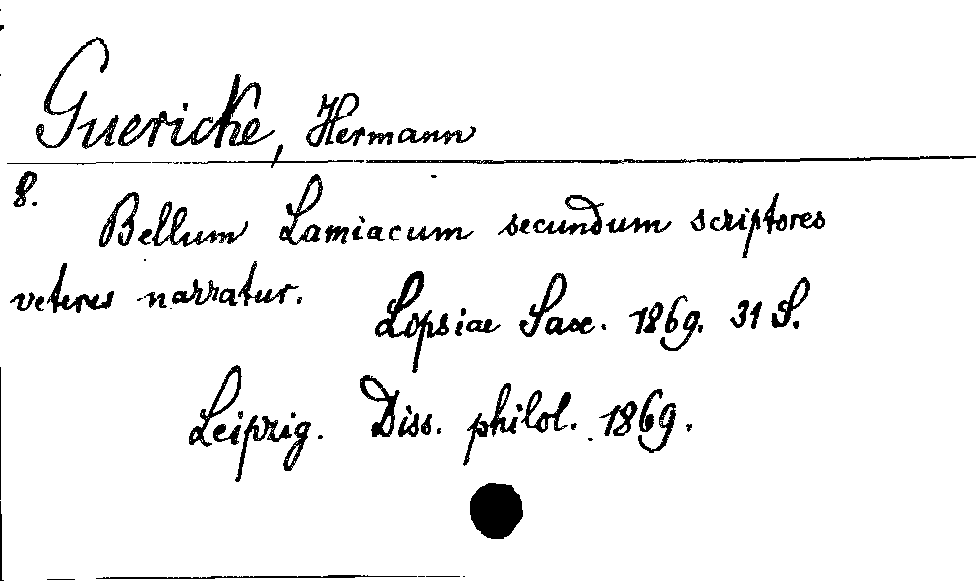 Guericke, Hermann
8.
Bellum Lamiacum secundum scriptores
veteres narratur.
Lipsiae Saxe. 1869. 31 S.
Leipzig. Diss. philol. 1869.